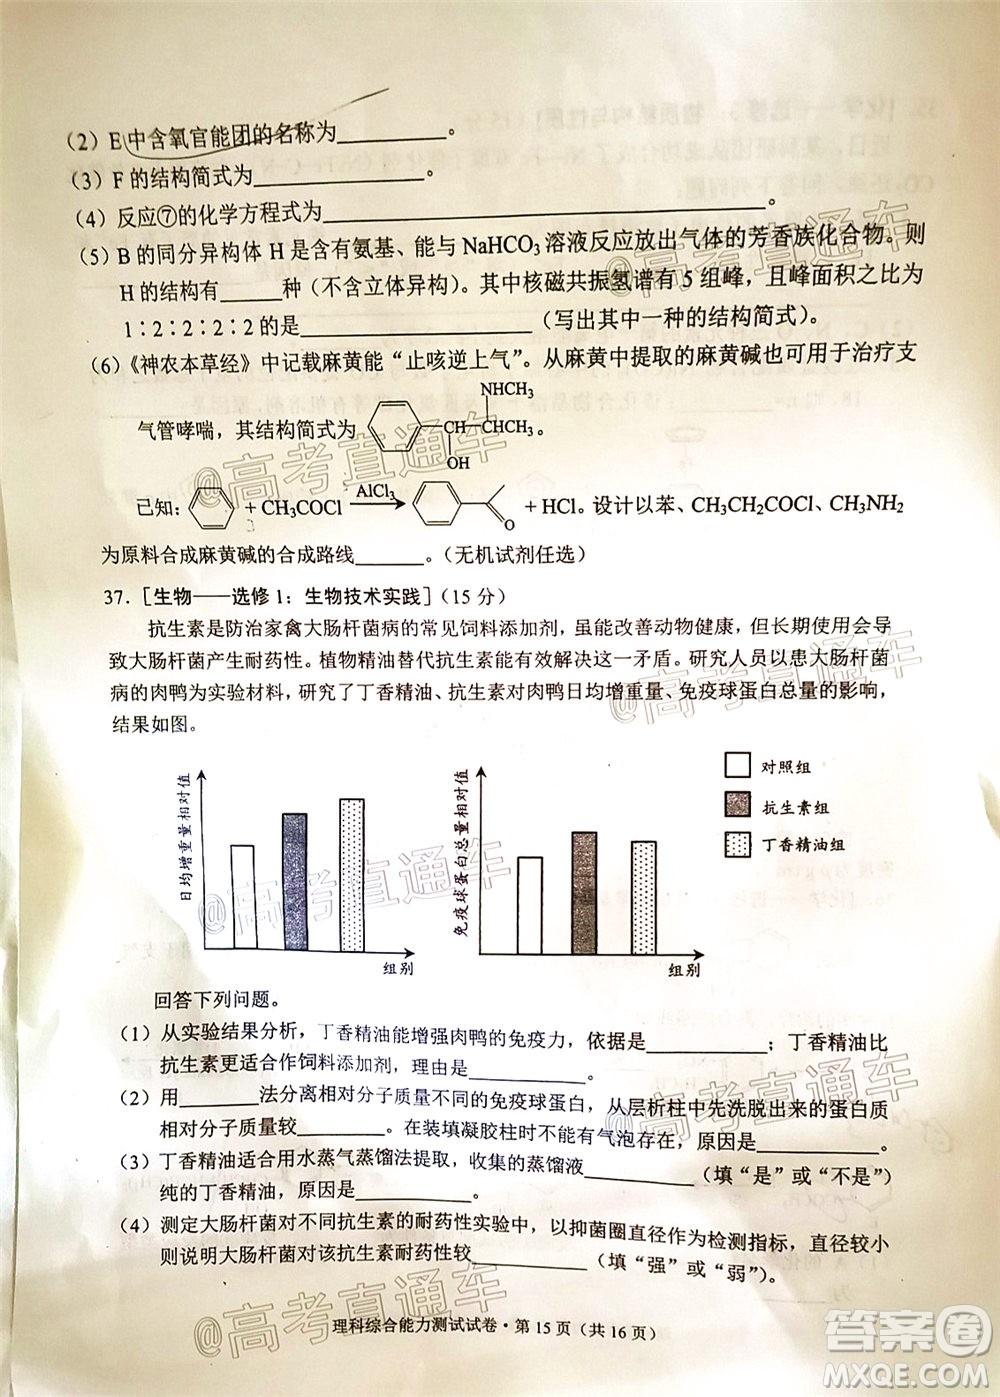 (2) E中含氧官能团的名称为__________。
(3) F的结构简式为__________。
(4) 反应⑦的化学方程式为__________。
(5) B的同分异构体H是含有氨基、能与NaHCO₃溶液反应放出气体的芳香族化合物。则
H的结构有______种（不含立体异构）。其中核磁共振氢谱有5组峰，且峰面积之比为
1∶2∶2∶2∶2的是__________（写出其中一种的结构简式）。
(6)《神农本草经》中记载麻黄能“止咳逆上气”。从麻黄中提取的麻黄碱也可用于治疗支
NHCH₃
气管哮喘，其结构简式为 CH—CHCH₃。
OH
已知： + CH₃COCl AlCl₃ O + HCl。设计以苯、CH₃CH₂COCl、CH₃NH₂
为原料合成麻黄碱的合成路线______。（无机试剂任选）
37．[生物——选修1：生物技术实践]（15分）
抗生素是防治家禽大肠杆菌病的常见饲料添加剂，虽能改善动物健康，但长期使用会
导致大肠杆菌产生耐药性。植物精油替代抗生素能有效解决这一矛盾。研究人员以患大肠杆菌
病的肉鸭为实验材料，研究了丁香精油、抗生素对肉鸭日均增重量、免疫球蛋白总量的影响，
结果如图。
日均增重量相对值
组别
免疫球蛋白总量相对值
组别
对照组
抗生素组
丁香精油组
回答下列问题。
(1) 从实验结果分析，丁香精油能增强肉鸭的免疫力，依据是__________；丁香精油比
抗生素更适合作饲料添加剂，理由是__________。
(2) 用________法分离相对分子质量不同的免疫球蛋白，从层析柱中先洗脱出来的蛋白质
相对分子质量较________。在装填凝胶柱时不能有气泡存在，原因是________。
(3) 丁香精油适合用水蒸气蒸馏法提取，收集的蒸馏液__________（填“是”或“不是”）
纯的丁香精油，原因是__________。
(4) 测定大肠杆菌对不同抗生素的耐药性实验中，以抑菌圈直径作为检测指标，直径较小
则说明大肠杆菌对该抗生素耐药性较__________（填“强”或“弱”）。
理科综合能力测试试卷·第15页（共16页）
@高考直通车
@高考直通车
@高考直通车
@高考直通车
@高考直通车
@高考直通车
答案圈
MXQE.COM